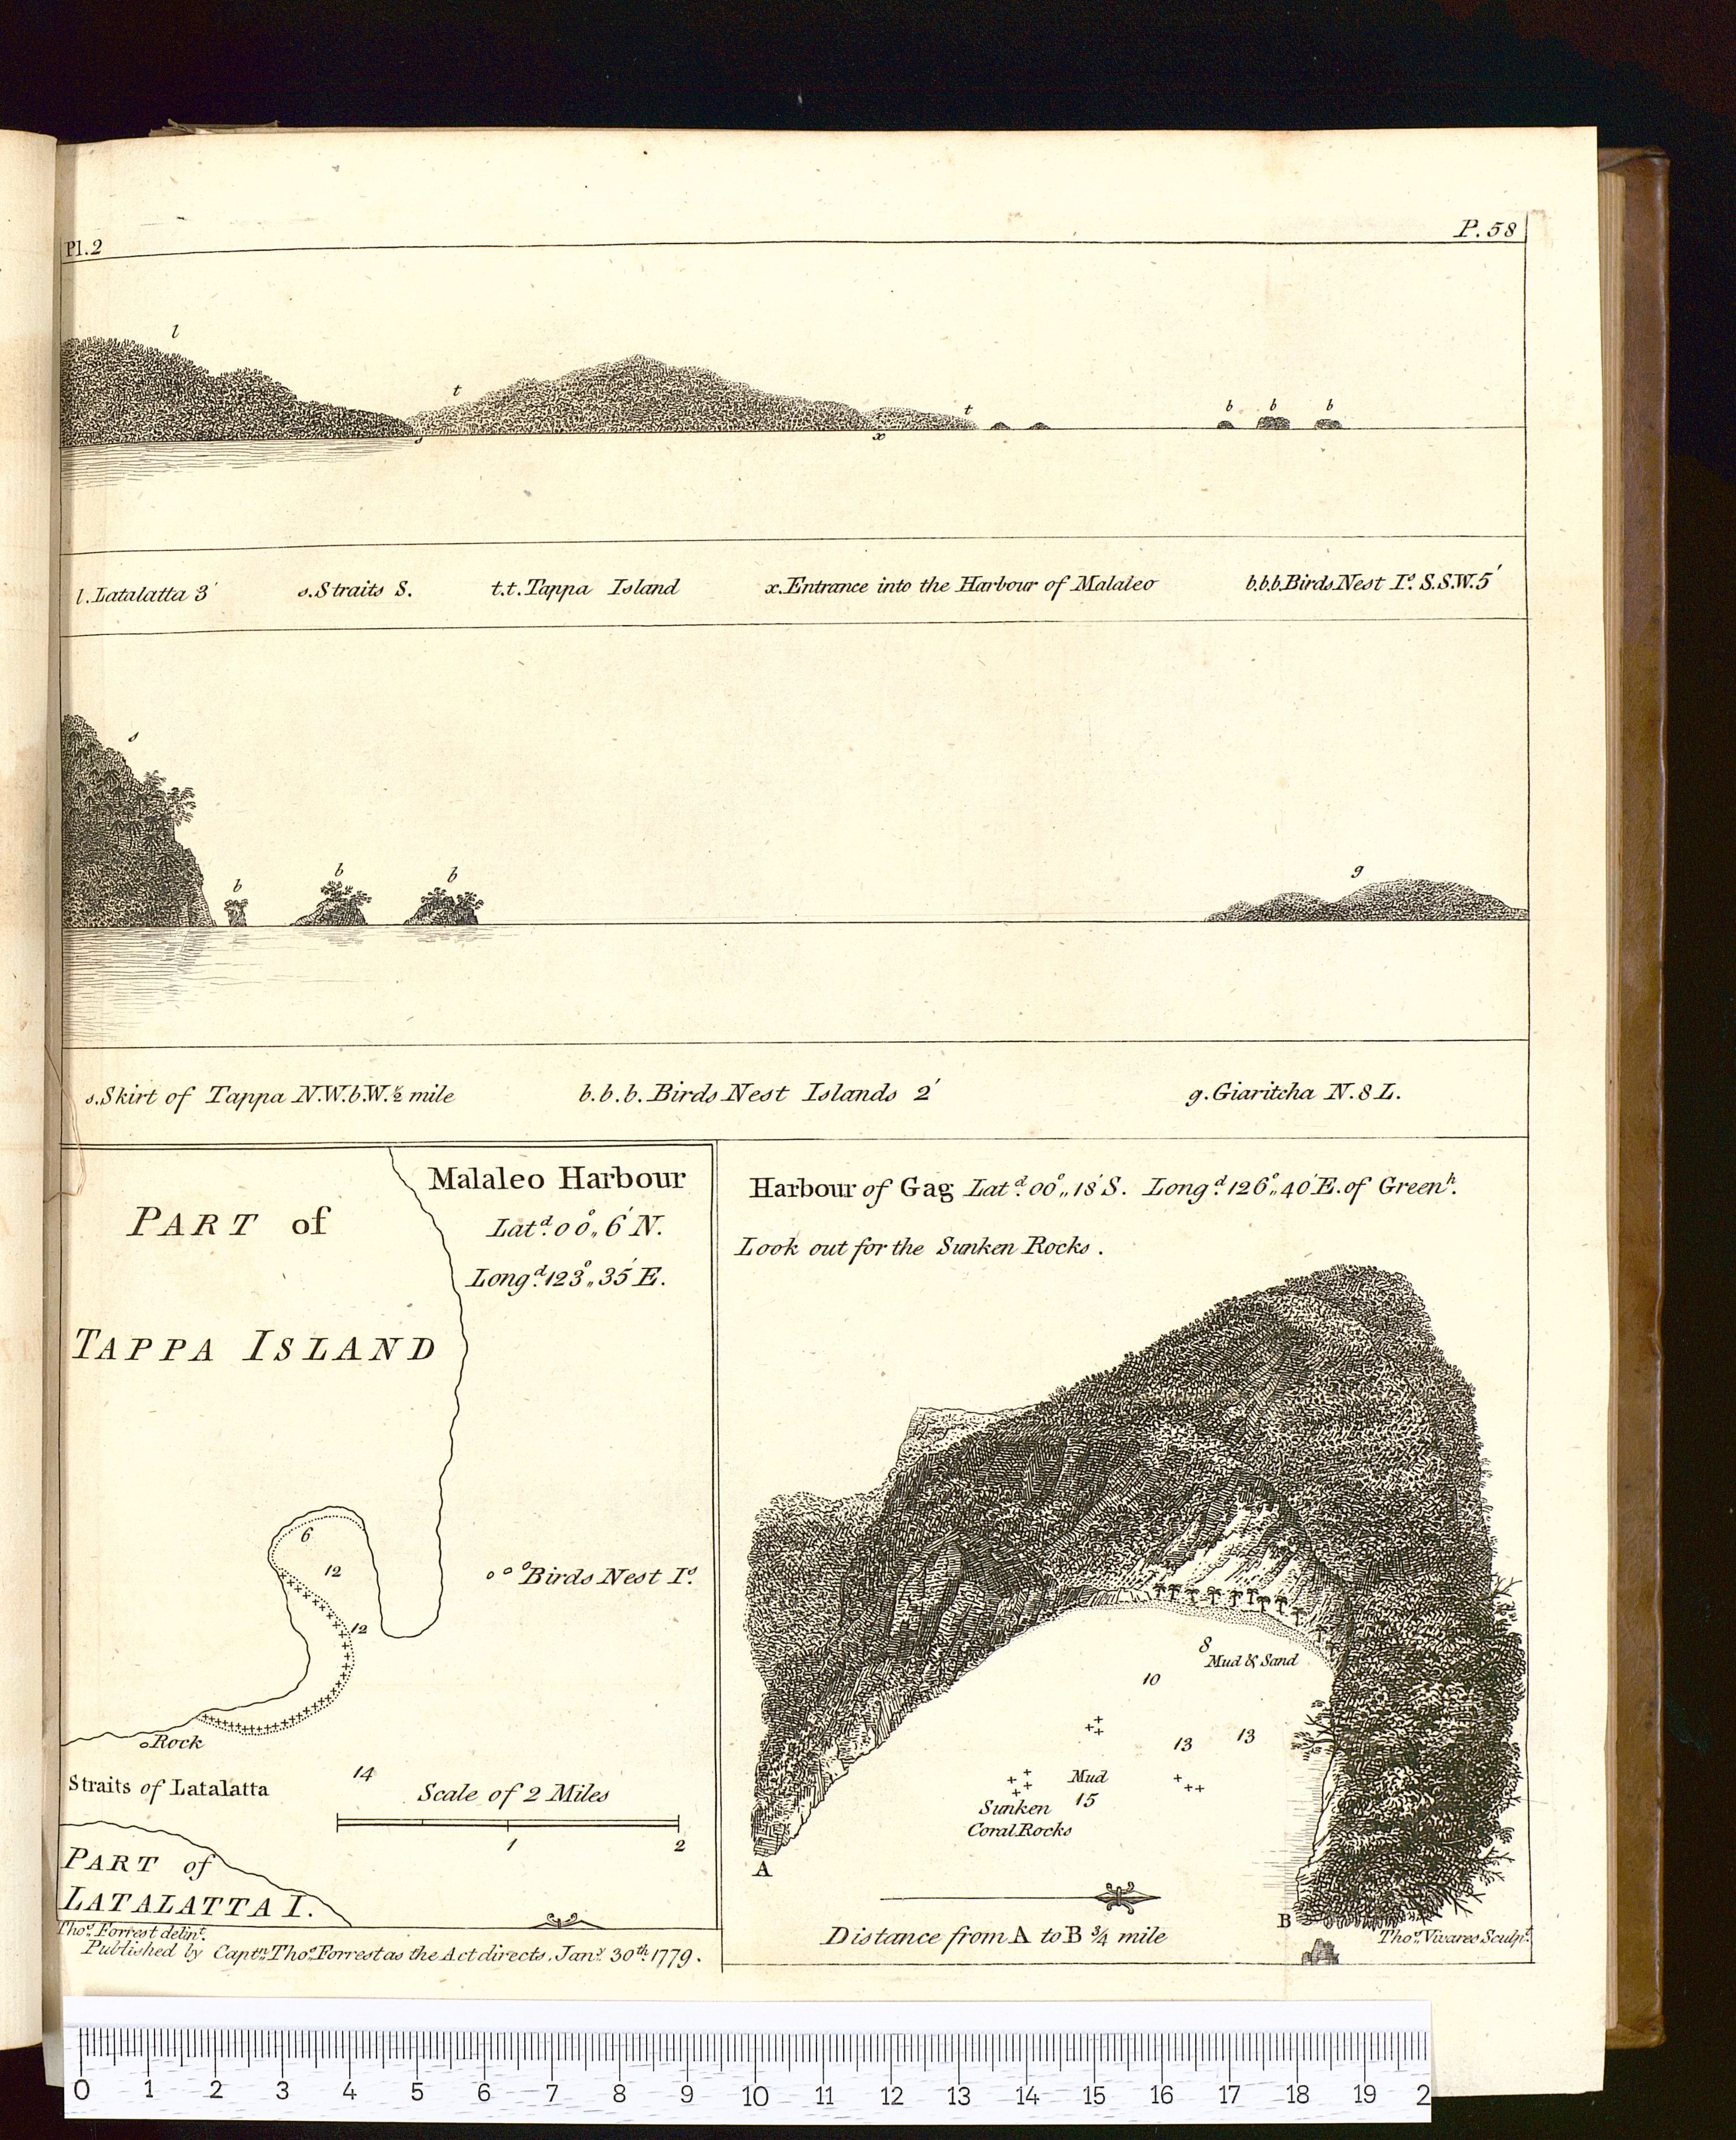 Pl.2
P.58
l
t
t
b b b
s
x
l.Latalatta 3′ s.Straits S. t.t.Tappa Island x.Entrance into the Harbour of Malaleo b.b.b.Birds Nest Iˢ. S.S.W.5′
s
b b b
g
s.Skirt of Tappa N.W.b.W.½ mile b.b.b.Birds Nest Islands 2′ g.Giaritcha N.8 L.
Malaleo Harbour
Latᵈ.00°,,6′N.
Longᵈ.123°,,35′E.
PART of
TAPPA ISLAND
6
12
12
Birds Nest Iˢ.
Rock
Straits of Latalatta
14
Scale of 2 Miles
1 2
PART of
LATALATTA I.
Thoˢ. Forrest delinᵗ.
Published by Captⁿ. Thoˢ. Forrest as the Act directs, Janʸ. 30ᵗʰ. 1779.
Harbour of Gag Latᵈ.00°,,18′S. Longᵈ.126°,,40′E.of Greenʰ.
Look out for the Sunken Rocks.
8
Mud & Sand
10
13 13
Mud
15
Sunken
Coral Rocks
A
B
Distance from A to B ¾ mile
Thoˢ. Vivares Sculpᵗ.
0 1 2 3 4 5 6 7 8 9 10 11 12 13 14 15 16 17 18 19 2